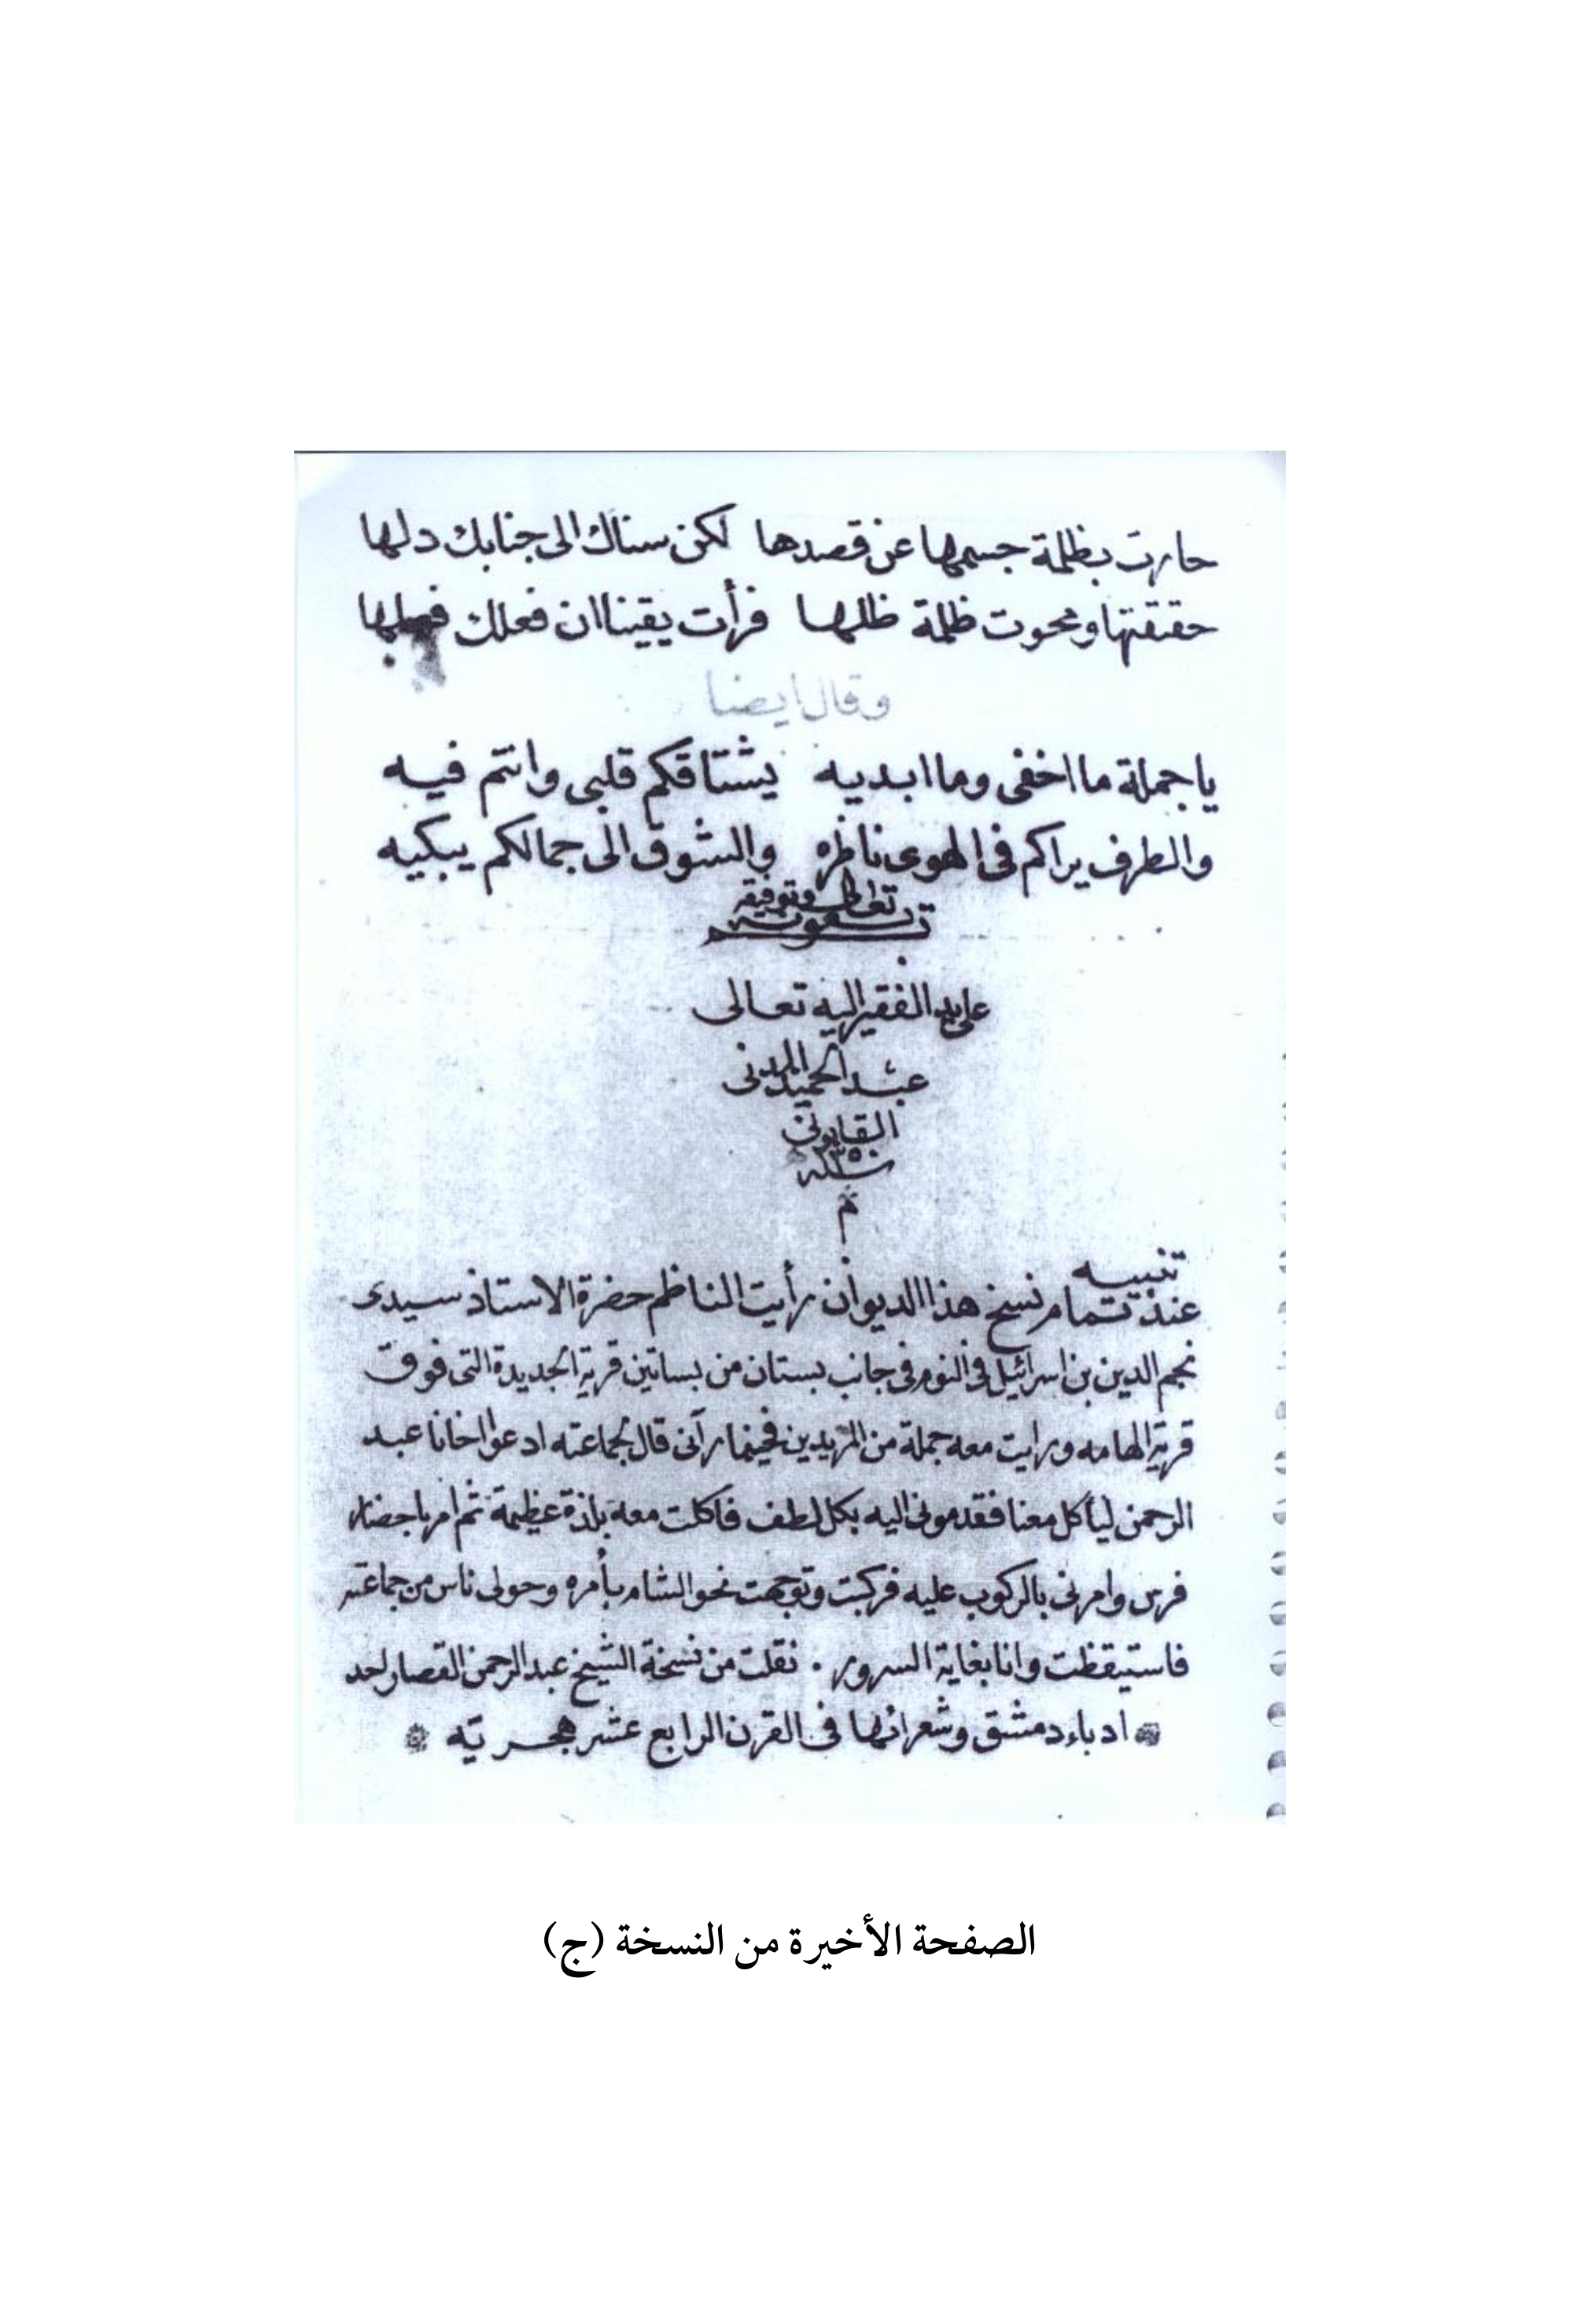 حارت بظلمة جسمها عن قصدها لكن سناك الى جنابك دلها
حققتها ومحوت ظلمة ظلها فرأت يقينا ان فعلك فعلها
وقال ايضا
يا جملة ما اخفى وما ابديه يشتاقكم قلبى وانتم فيه
والطرف يراكم فى الهوى ناظره والشوق الى جمالكم يبكيه
تم بعونه تعالى وتوفيقه
على يد الفقير اليه تعالى
عبد الحميد المدنى
القابونى
سنة ١٣٥٠
م
تنبيه
عند تمام نسخ هذا الديوان رأيت الناظم حضرة الاستاذ سيدى
نجم الدين بن اسرائيل فى النوم فى جانب بستان من بساتين قرية الجديدة التى فوق
قرية الهامه ورايت معه جملة من المريدين فحينما رآنى قال لجماعته ادعوا اخانا عبد
الرحمن ليأكل معنا فقدمونى اليه بكل لطف فاكلت معه بلذة عظيمة ثم امر باحضار
فرس وامرنى بالركوب عليه فركبت وتوجهت نحو الشام بأمره وحولى ناس من جماعته
فاستيقظت وانا بغاية السرور . نقلت من نسخة الشيخ عبد الرحمن القصار احد
ادباء دمشق وشعرائها فى القرن الرابع عشر هجريّه
الصفحة الأخيرة من النسخة (ج)